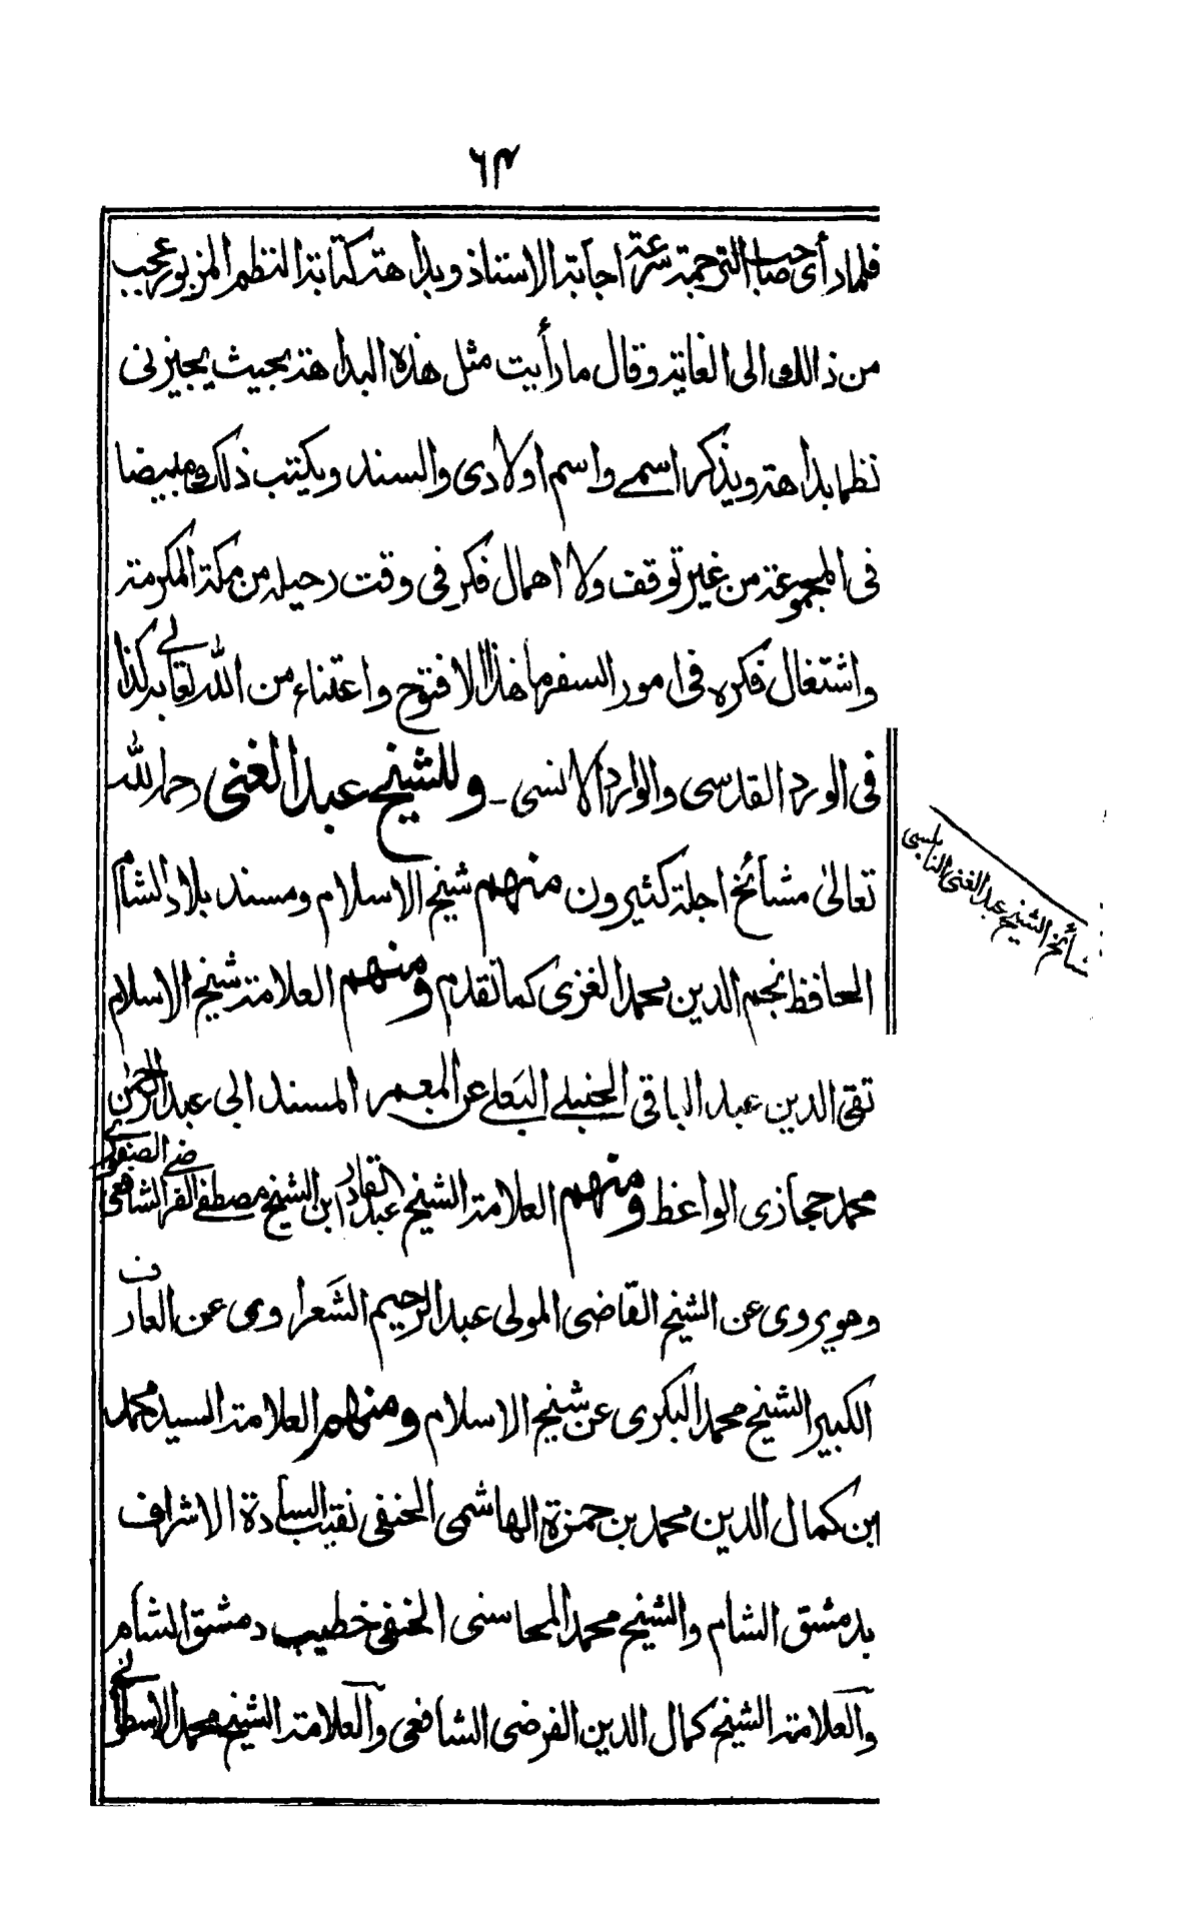 ٦٣
فلما رأى صاحب الترجمة سرعة اجابة الاستاذ وبداهة كتابة النظم المزبور عجب
من ذالك الى الغاية وقال ما رأيت مثل هذه البداهة بحيث يجيزنى
نظما بداهة ويذكر اسمى واسم اولادى والسند ويكتب ذلك مبيضا
فى المجموعة من غير توقف ولا اهمال فكر فى وقت رحيله من مكة المكرمة
واشتغال فكره فى امور السفر ما هذا الا فتوح واعتناء من الله تعالى به كذا
فى الورد القدسى والوارد الانسى ـ وللشيخ عبد الغنى رحمه الله
تعالىٰ مشائخ اجلة كثيرون منهم شيخ الاسلام ومسند بلاد الشام
الحافظ نجم الدين محمد الغزى كما تقدم ومنهم العلامة شيخ الاسلام
تقى الدين عبد الباقى الحنبلى البَعلى عن المعمر المسند الى عبد الرحمٰن
محمد حجازى الواعظ ومنهم العلامة الشيخ عبد القادر ابن الشيخ مصطفى الفرضى الصفورى الشافعى
وهو يروى عن الشيخ القاضى المولى عبد الرحيم الشَعراوى عن العارف
الكبير الشيخ محمد البكرى عن شيخ الاسلام ومنهم العلامة السيد محمد
ابن كمال الدين محمد بن حمزة الهاشمى الحنفى نقيب السادة الاشراف
بدمشق الشام والشيخ محمد المحاسنى الحنفى خطيب دمشق الشام
والعلامة الشيخ كمال الدين الفرضى الشافعى والعلامة الشيخ محمد الاسطوانى
مشائخ الشيخ عبد الغنى النابلسى